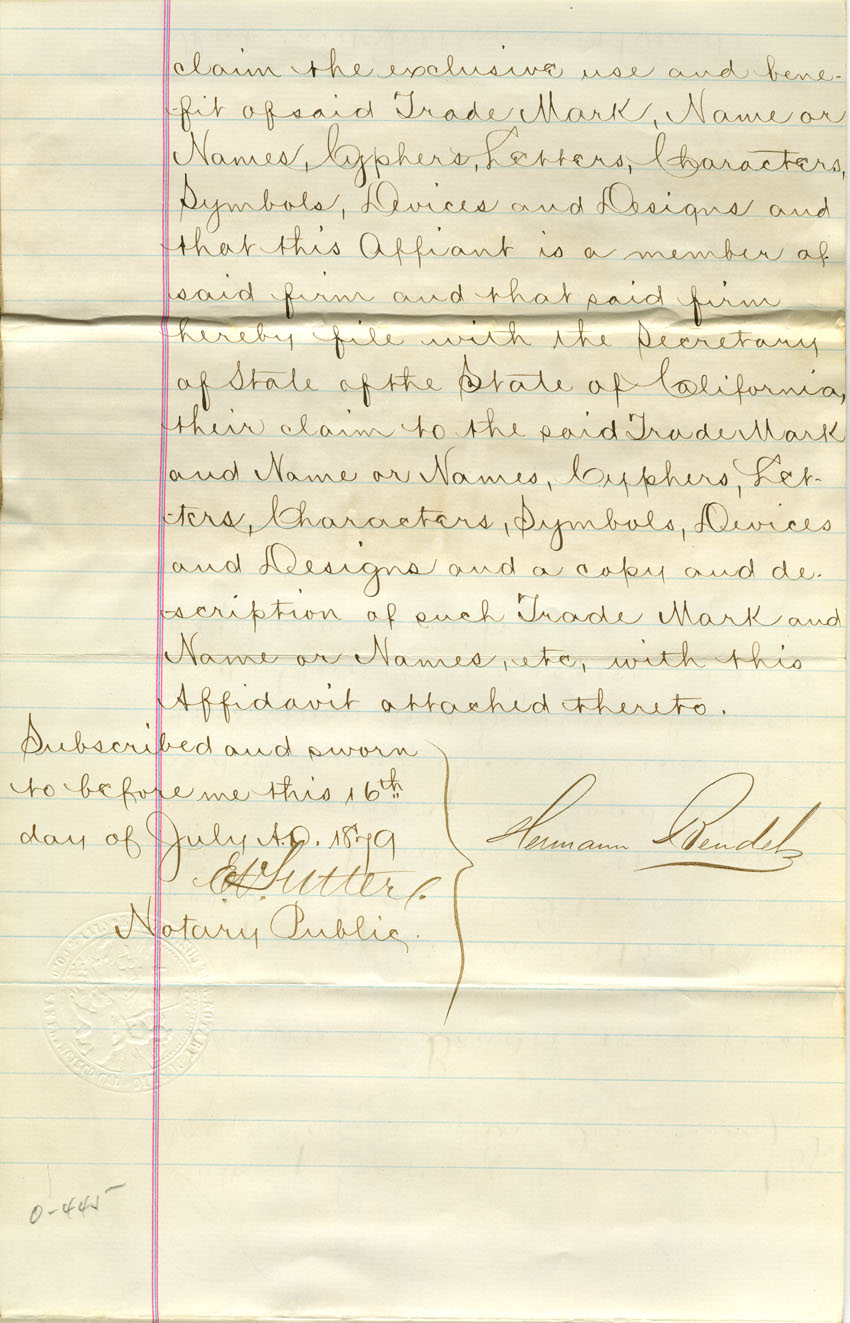 claim the exclusive use and bene-
-fit of said Trade Mark, Name or
Names, Cyphers, Letters, Characters,
Symbols, Devices and Designs and
that this Affiant is a member of
said firm and that said firm
hereby file with the Secretary
of State of the State of California,
their claim to the said Trade Mark
and Name or Names, Cyphers, Let-
-ters, Characters, Symbols, Devices
and Designs and a copy and de-
-scription of such Trade Mark and
Name or Names, etc, with this
Affidavit attached thereto.
Subscribed and sworn
to before me this 16th
day of July A.D. 1879
Hermann Bendel
E.V. Sutter
Notary Public.
0-445